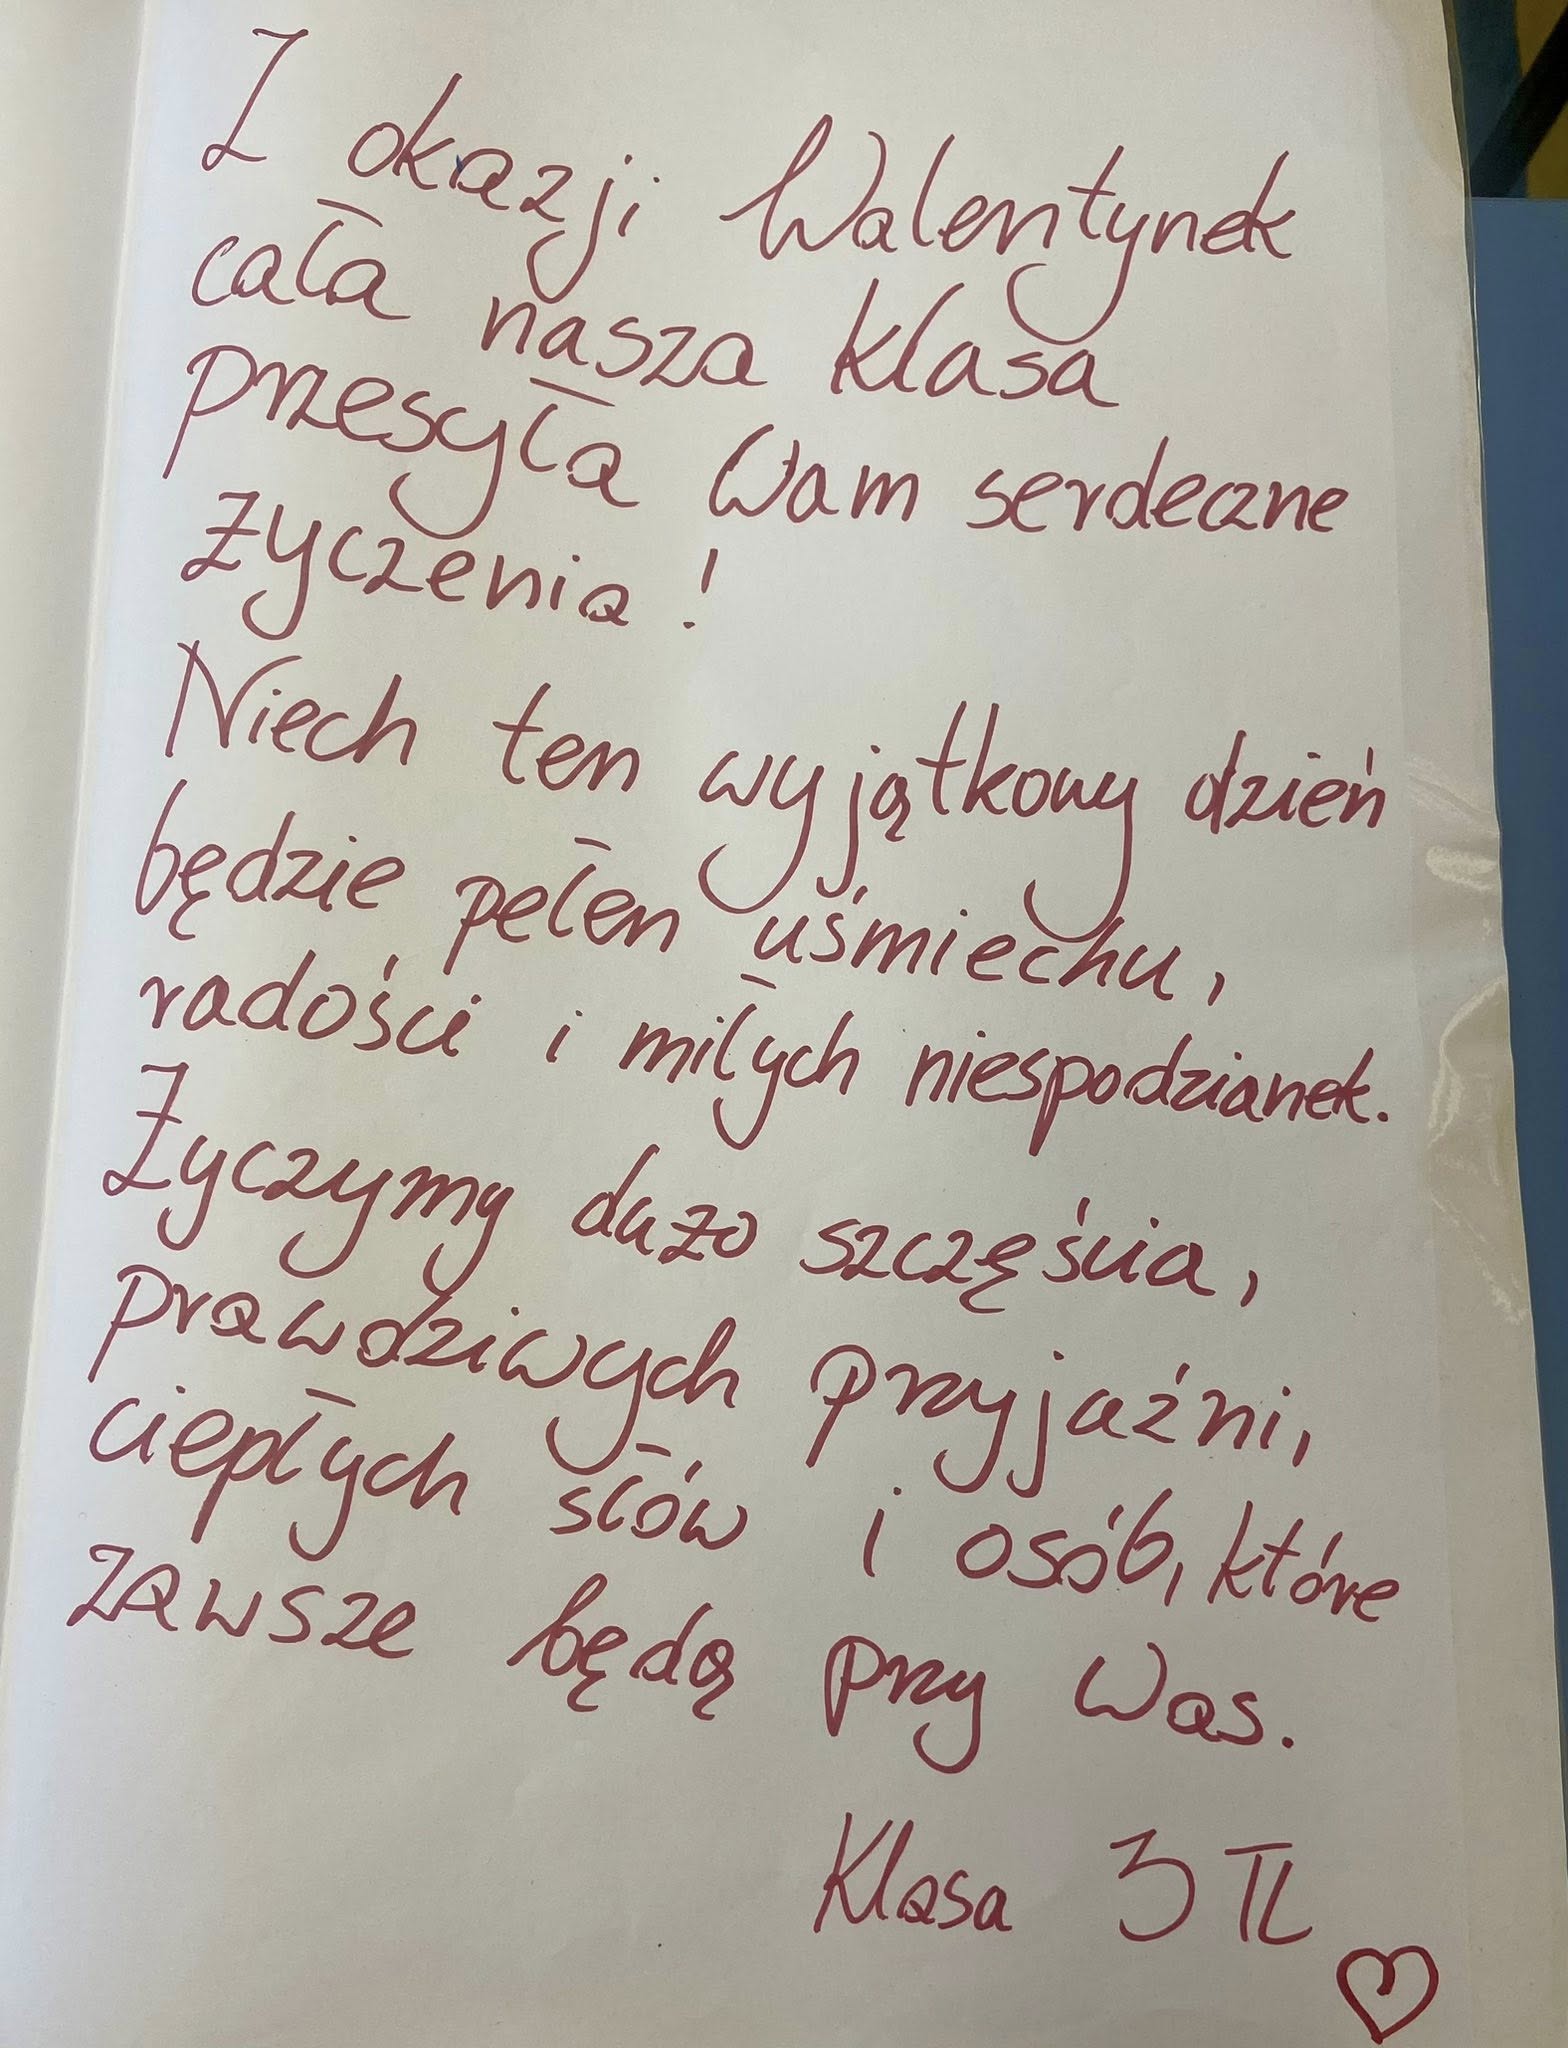 Z okazji Walentynek
cała nasza klasa
przesyła Wam serdeczne
życzenia!
Niech ten wyjątkowy dzień
będzie pełen uśmiechu,
radości i miłych niespodzianek.
Życzymy dużo szczęścia,
prawdziwych przyjaźni,
ciepłych słów i osób, które
zawsze będą przy Was.
Klasa 3 TL